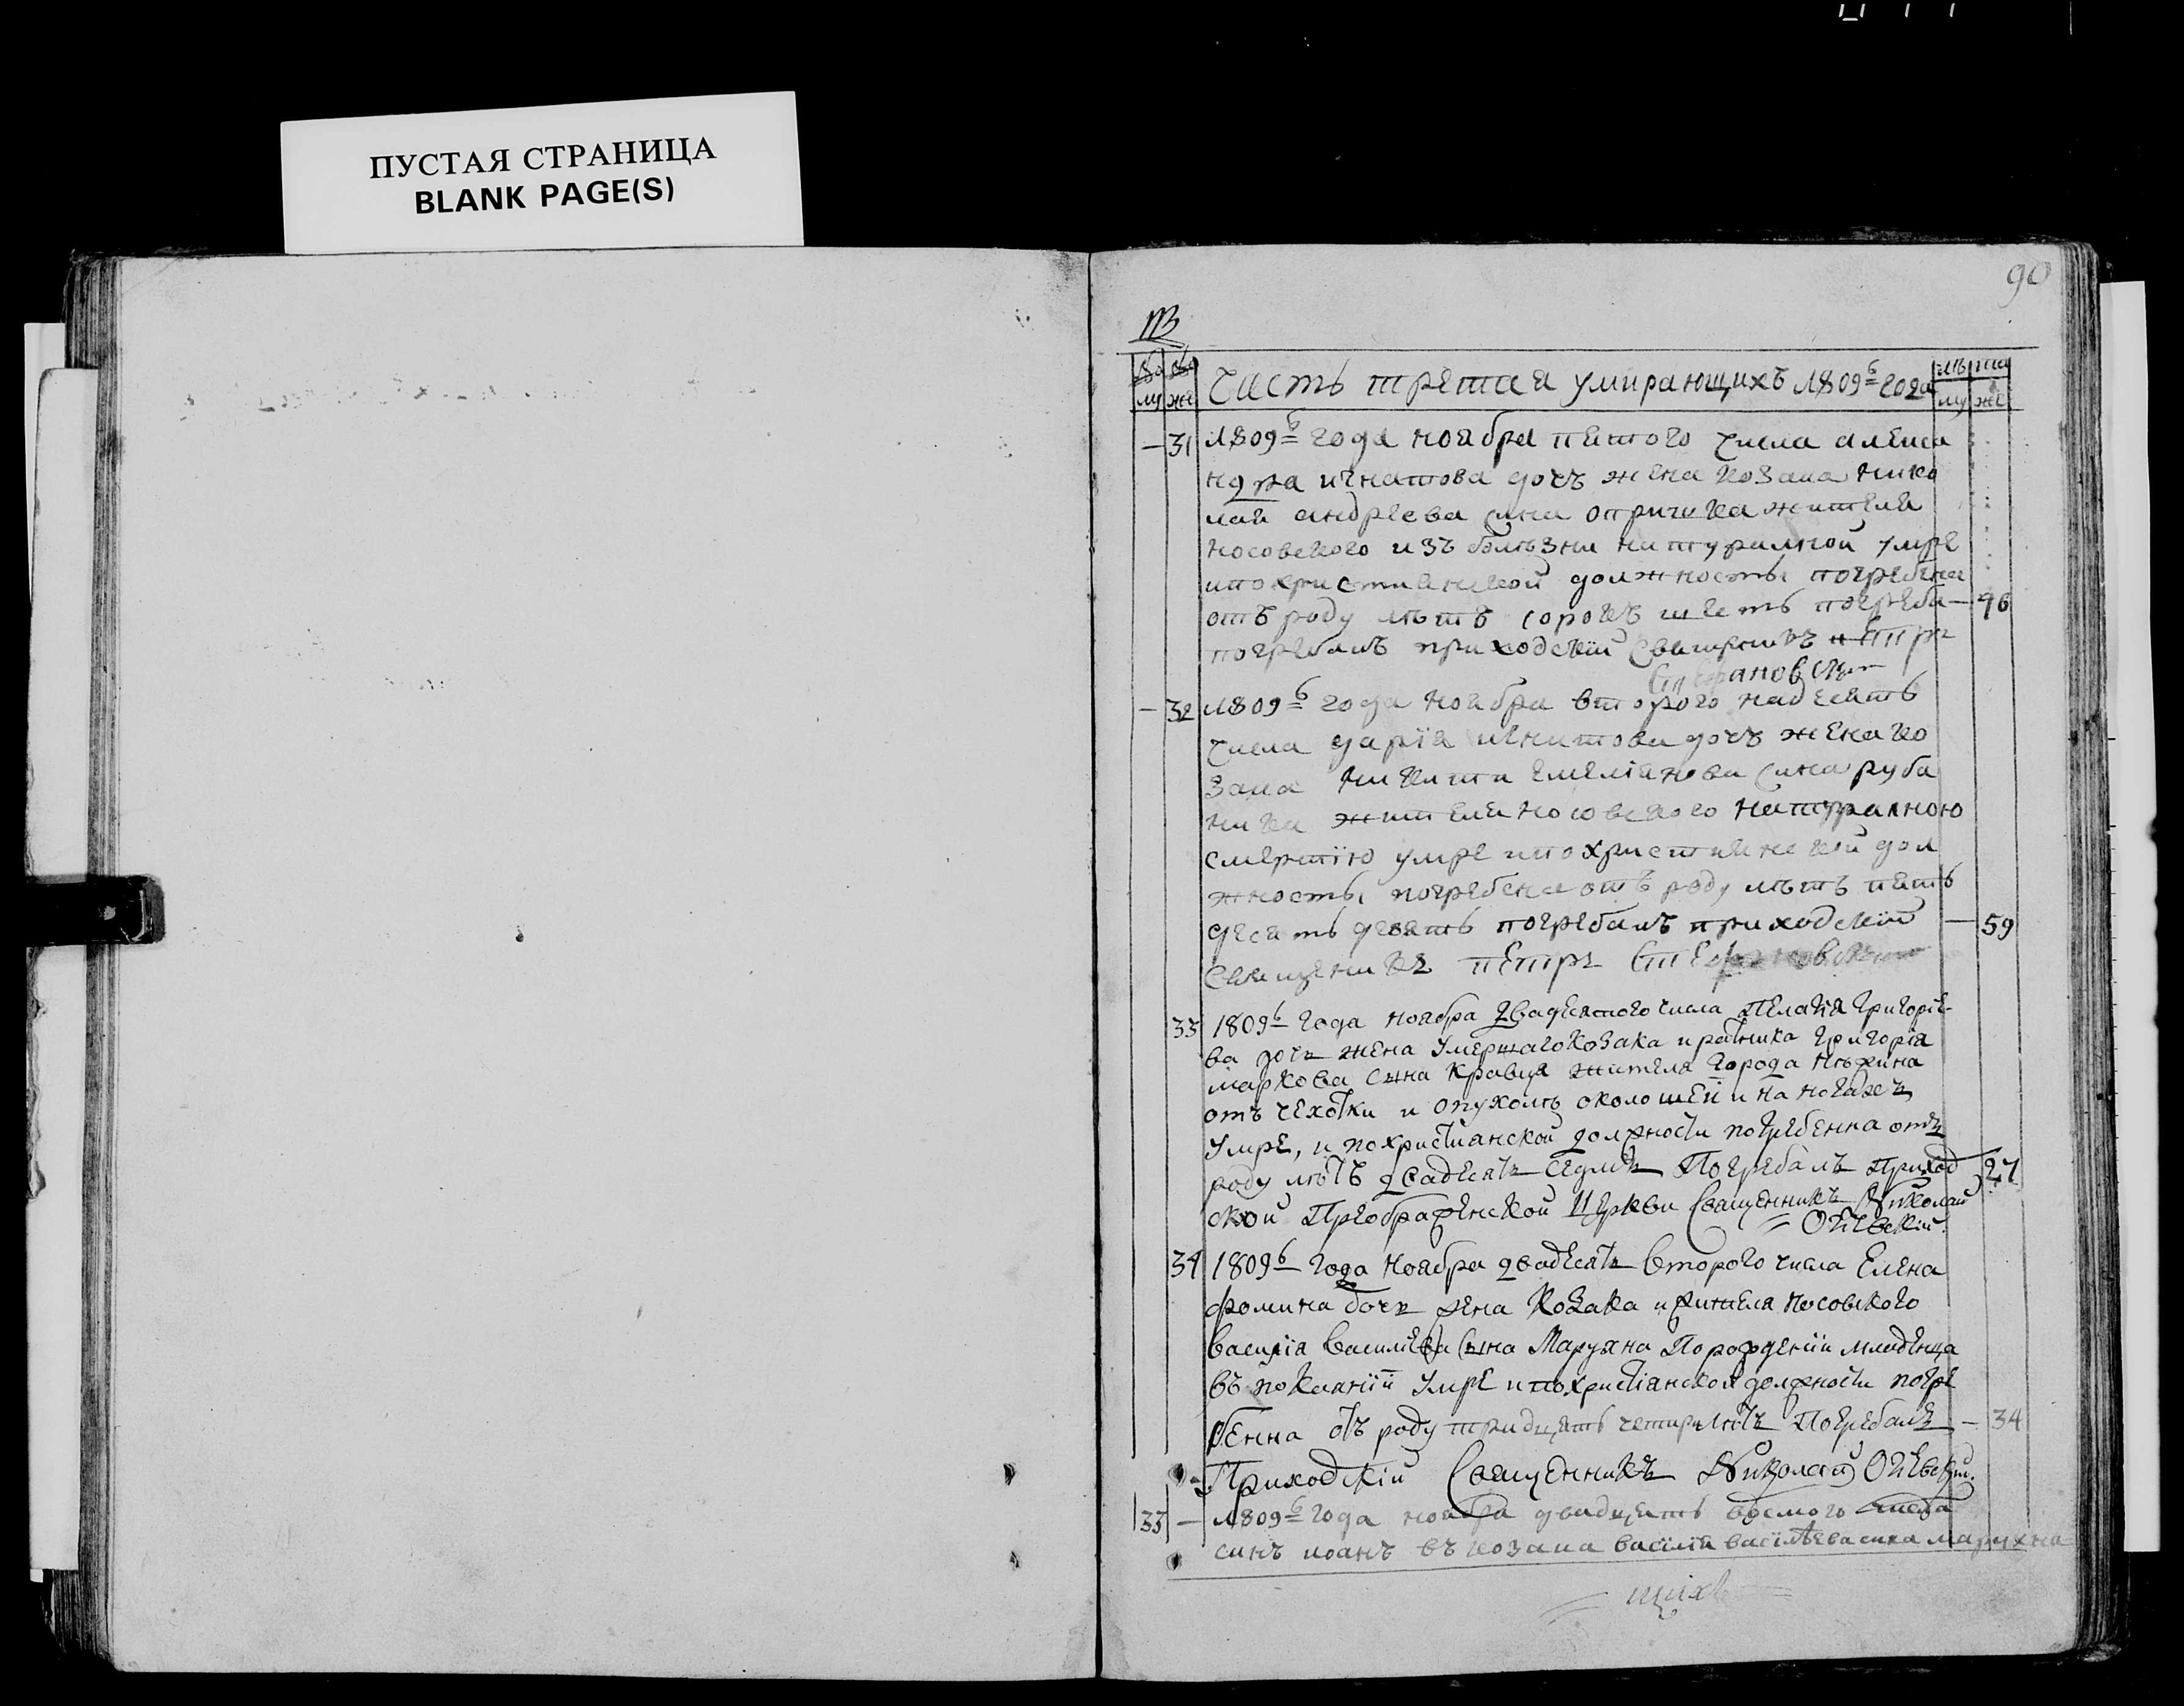 ПУСТАЯ СТРАНИЦА
BLANK PAGE(S)
90
му же
Часть третая умирающихъ 1809го года
лѣ та
му же
— 31 1809го года ноября пятого числа алекса
ндра игнатова дочъ жена козака нико
лай андреева сина жителя
носовского изъ болѣзни натуралной умре
ипохристианской должносты погребена
отъ роду лѣтъ сорокъ шесть — 46
погребалъ приходскій священикъ петръ
Стефановскій
— 32 1809го года ноября второго надесять
числа дарія игнатова дочъ жена ко
зака никита емеліянова сина руба
нка жителя носовского натуралною
смертію умре ипохристиянской дол
жносты погребена отъ роду лѣтъ пять
десять девять погребалъ приходскій — 59
священикъ петръ Стефановскій
33 1809го года ноября двадесятого числа Пелагія Григоріе-
ва дочь жена умершаго козака и ратника Григорія
маркова сына кравця жителя города Нѣжина
отъ чехотки и опухолѣ около шеи и на ногахъ
умре, и похристіанской должности погребенна отъ
роду лѣтъ двадесять седмъ Погребалъ Приход 27
ской Преображенской Церкви Священникъ Николай
Огіевскій.
34 1809го года Ноября двадесять второго числа Елена
фомина дочь жена Козака и жителя Носовского
василія василіева сына Марухна По рождении младенца
въ покаяніи умре и по христіанской должности погре
бенна отъ роду тридцять четири лѣтъ Погребалъ — 34
Приходскій Священникъ Николай Огіевскій.
33 — 1809го года ноября двадцять числа
синъ иоанъ въ козака василія василѣева сина марухна